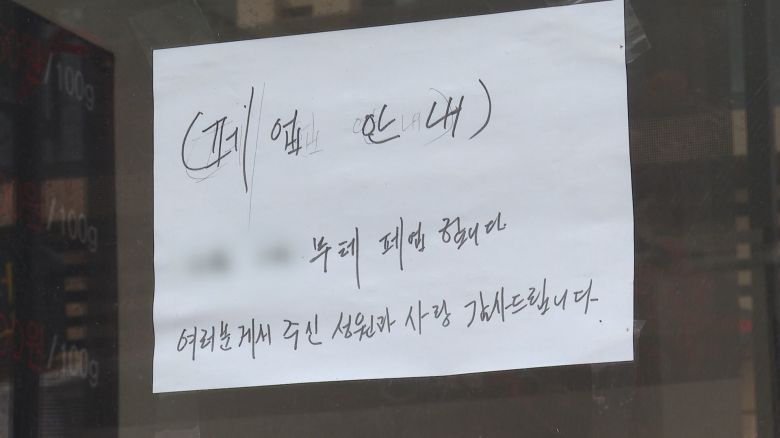 (폐 업 안 내)
부테 폐업 합니다
여러분게서 주신 성원과 사랑 감사드립니다.
원/100g
원/100g
원/100g